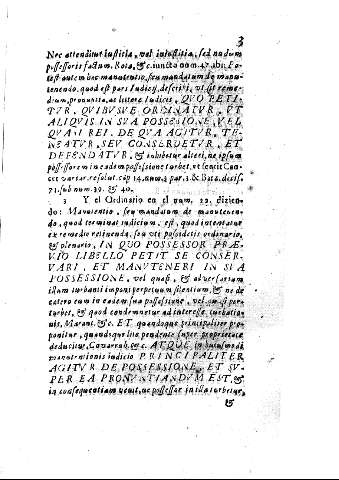 3
Nec attenditur iustitia, vel iniustitia, sed nudum
possessoris factum. Rota, &c. iuncta num. 47. ibi: Po-
test autem hac manutentio, seu mandatum de manu-
tenendo, quod est pars Iudicij, describi, vt sit reme-
dium, pronuntia, ac litera Iudicis, QVO PETI-
TVR, QVIBVSVE ORDINATVR, VT
ALIQVIS IN SVA POSSESSIONE, VEL
QVASI REI. DE QVA AGITVR, TE-
NEATVR, SEV CONSERDETVR, ET
DEFENDATVR, & inhibetur alteri, ne ipsum
possessorem in eadem possessione turbet,
var. resolut. cap. 14. num. 3. par. 3. & Rota. decis.
71. sub num. 39. & 40.
3 Y el Ordinario en el num. 22. dizien-
do: Manutentio, seu mandatum de manutenen-
do, quod terminat iudicium, est, quod intentatur
ex remedio retinenda, seu vti possidetis ordinario,
& plenario, IN QVO POSSESSOR PRÆ-
VIO LIBELLO PETIT SE CONSER-
VARI, ET MANVTENERI IN SVA
POSSESSIONE, vel quasi, & adversarium
illum turbanti imponi perpetuum silentium, & ne de
cetero eum in eadem sua possessione, vel quasi per-
turbet, & quod condemnetur ad interesse turbatio-
nis, Marant. &c. ET quandoque principaliter pro-
ponitur, quandoque lite pendente super proprietate
deducitur, Covarrub. &c. ATQVE in huiusmodi
manutentionis iudicio PRINCIPALITER
AGITVR DE POSSESSIONE, ET SV-
PER EA PRONVNTIANDVM EST, &
in consequentiam venit, ne possessor in illa turbetur,
&